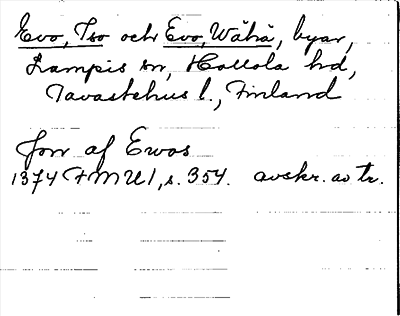 Evo, Iso och Evo, Wähä, byar,
Lampis sn, Hollola hd,
Tavastehus l., Finland
Jon af Ewos
1374 FMU 1, s. 354. avskr. av tr.